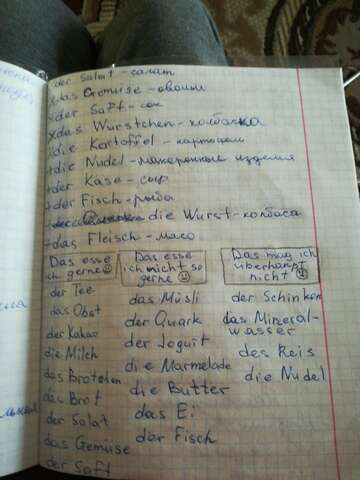 der Salat - салат
xдas Gemüse - овощи
xder Saft - сок
xdas Würstchen - колбаска
die Kartoffel - картофель
+die Nudel - макаронные изделия
+der Käse - сыр
+der Fisch - рыба
die Wurst - колбаса
+das Fleisch - мясо
Das esse ich gerne
Das esse ich nicht so gerne
Das mag ich überhaupt nicht
der Tee
das Obst
der Kakao
die Milch
das Brötchen
das Brot
der Salat
das Gemüse
der Saft
das Müsli
der Quark
der Jogurt
die Marmelade
die Butter
das Ei
der Fisch
der Schinken
das Mineral-
wasser
des Reis
die Nudel